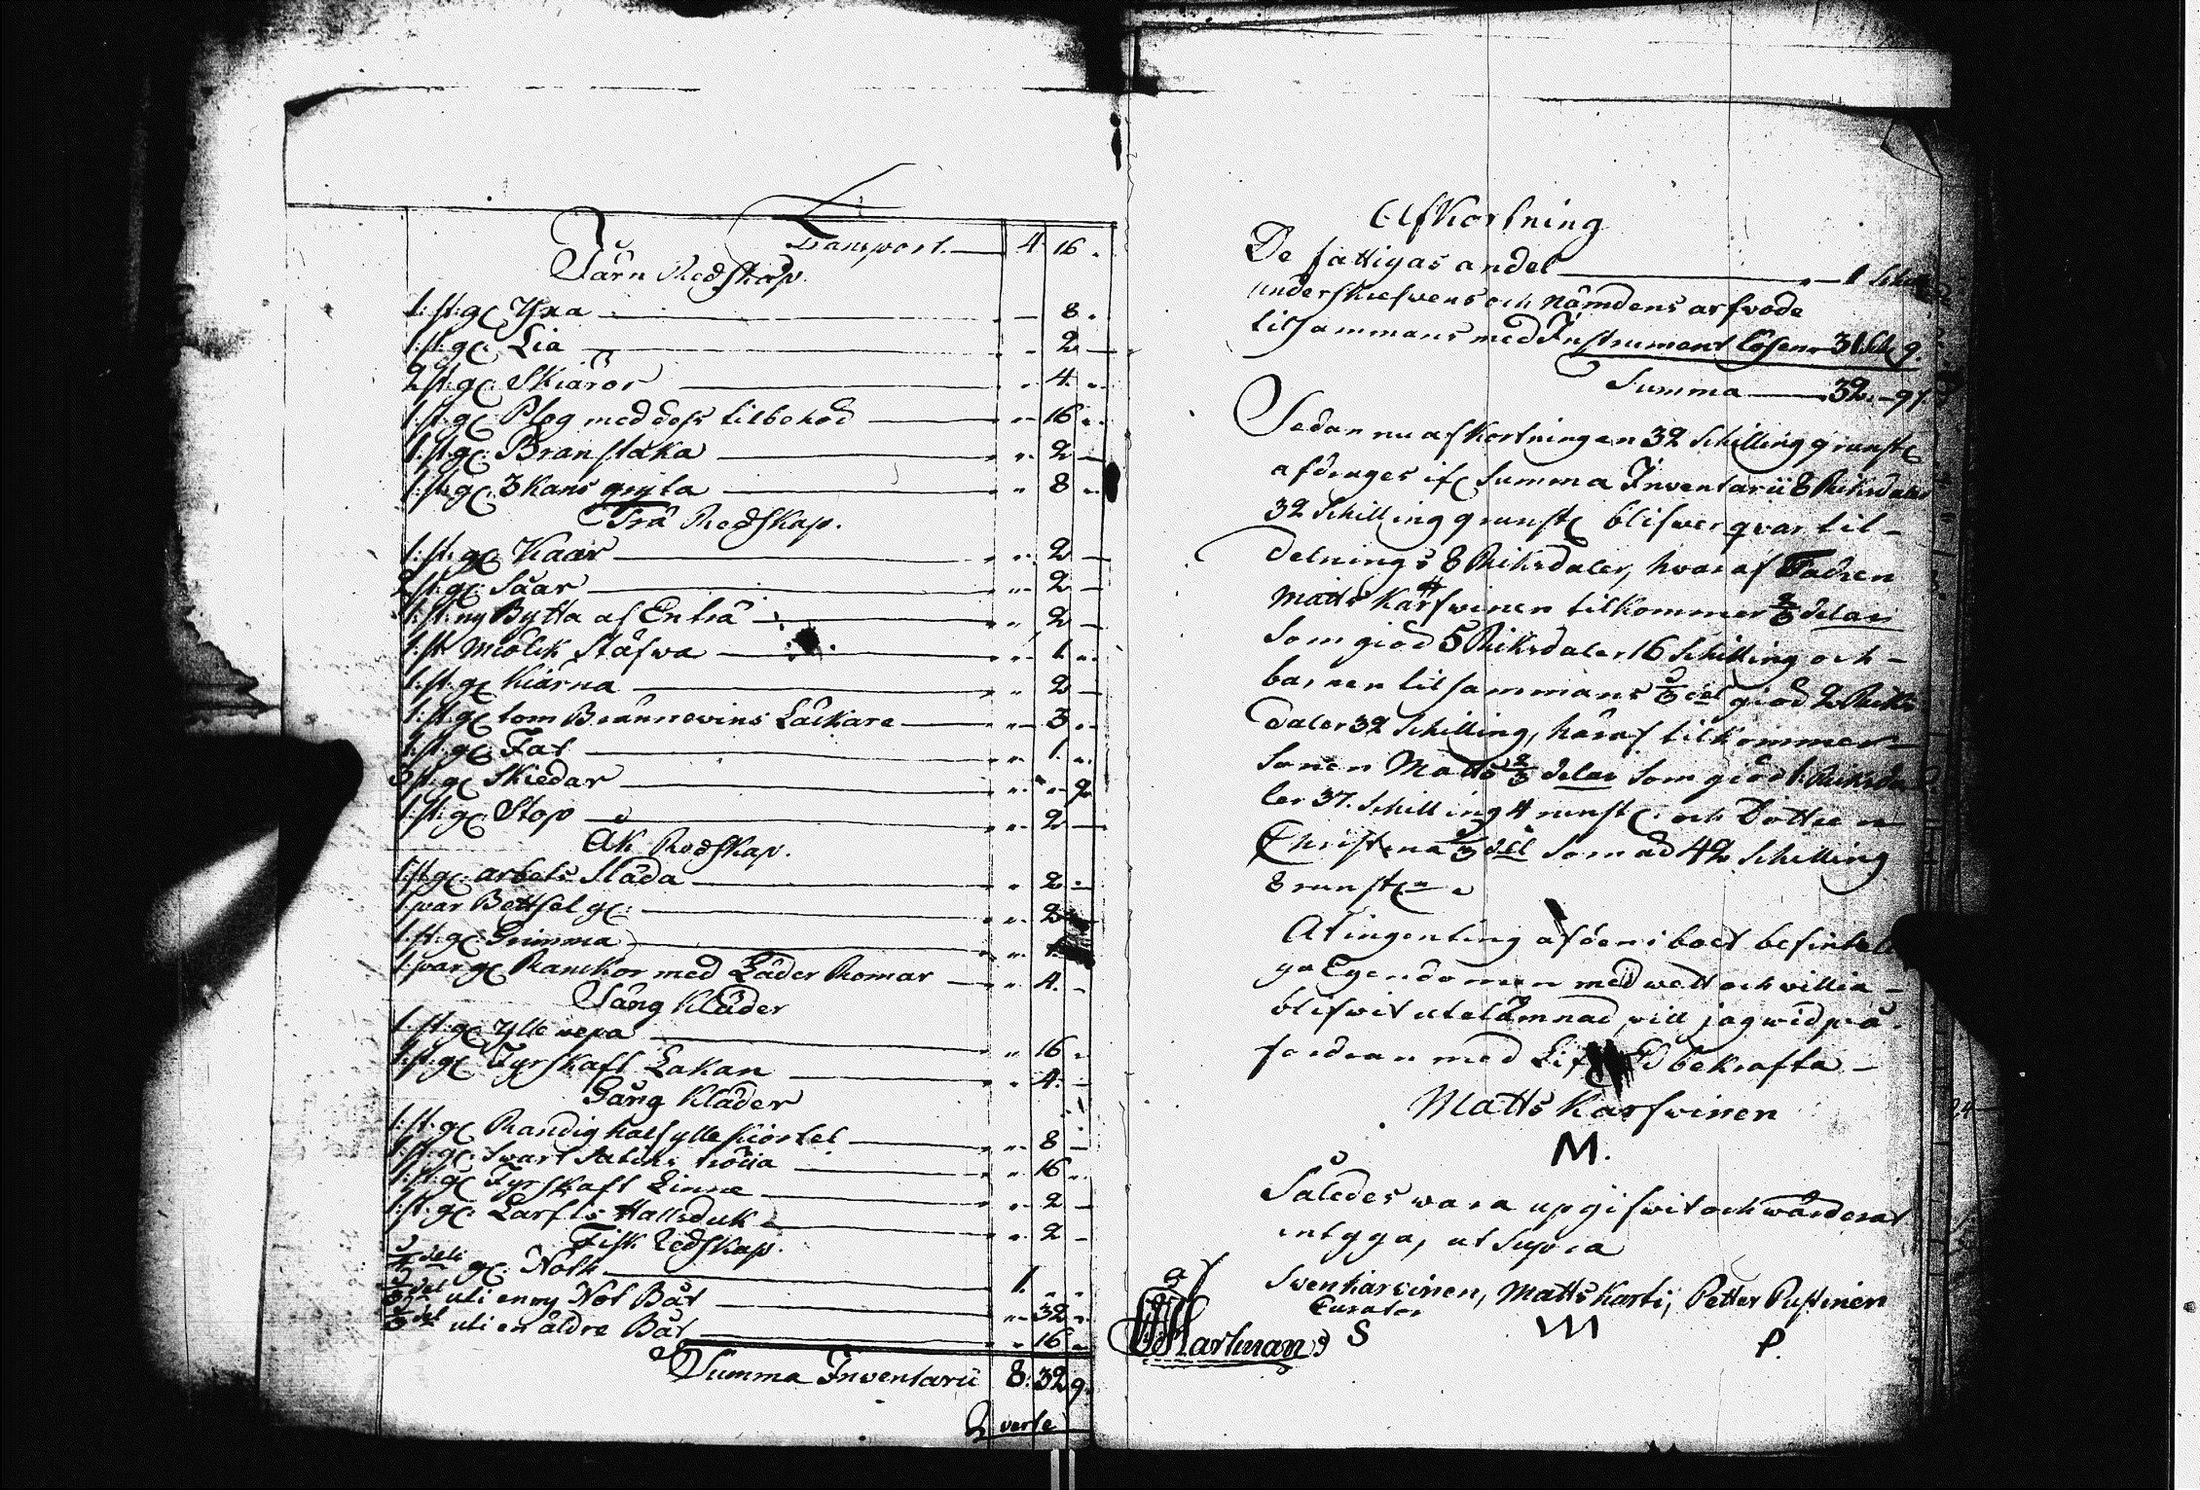 Transport. 4 16.
Järn Redskap.
1: st: gl. Yxa 8.
1: st: gl: Lia 2
2 st: gl: Skiäror 4.
1: st: gl. Plog med dess tilbehör 16
1: st: gl: Branstaka 2
1: st: gl: 3 kans gryta 8
Trä Redskap.
1: st: gl Kaar 2
2 st: gl: Såar 2
1: st: ny Bytta af Enträ 2
1: st: Miölck Stäfwa 1.
1: st: gl Kiärna 2
1: st: gl tom Brännevins Läckare 3.
1: st: gl: Fat 1.
3 st: gl Skiedar 9
1: st: gl: Stop 2
Åk Redskap.
1: st: gl: arbets Släda 2
1 par Bettsel gl: 2
1: st: gl: Grimma
1 par gl Ranckor med Läder Romar 4.
Säng Kläder
1: st: gl Ylle repa 16
1: st: gl Fyrskaft Lakan 4.
Gång Kläder
1: st: gl Randig half ylle kiortel 8
1: st: gl: Swart tröija 16
1: st: gl Fyrskaft Linne 2
1: st: gl: Larfts Hallsduk 2
Fisk Redskap.
gl: Noth 1.
uti en ny Not Båt 32
1/3 del uti en äldre Båt 16
Summa Inventarii 8: 32 9.
verte
Afkortning
De fattigas andel 1
underskrefwens och Nämdens arfvode
tilsammans med Instrument lösen 31 9.
Summa 32. 9
Sedan nu afkortningen 32 Schilling 9 runst
afdrages ifr Summa Inventarii 8 Riksdaler
32 Schilling 9 runst blifwer qvar til-
delnings 8 Riksdaler, hwaraf Fadren
Matts Karfwinen tilkommer 2/3 delar
som giör 5 Riksdaler 16 Schilling och-
barnen tilsammans 1/3 del giör 2 Riks
daler 32 Schilling, häraf tilkommer
sonen Matts 2/3 delar som giör 1 Riksda
ler 37. Schilling 4 runst: och Dottren
Christina 1/3 del som är 42 Schilling
8 runst
At ingenting af den i boet befintel
ga Egendomen med wett och villia-
blifwit utelämnad, vill jag wid på-
fordran med Lif Ed bekräfta-
Matts Karfwinen
M.
Således wara upgifwit och wärderat
intyga, ut supra
Swen Karvinen, Matts Karti, Petter Pustinen
Curator
Hartman S M P.